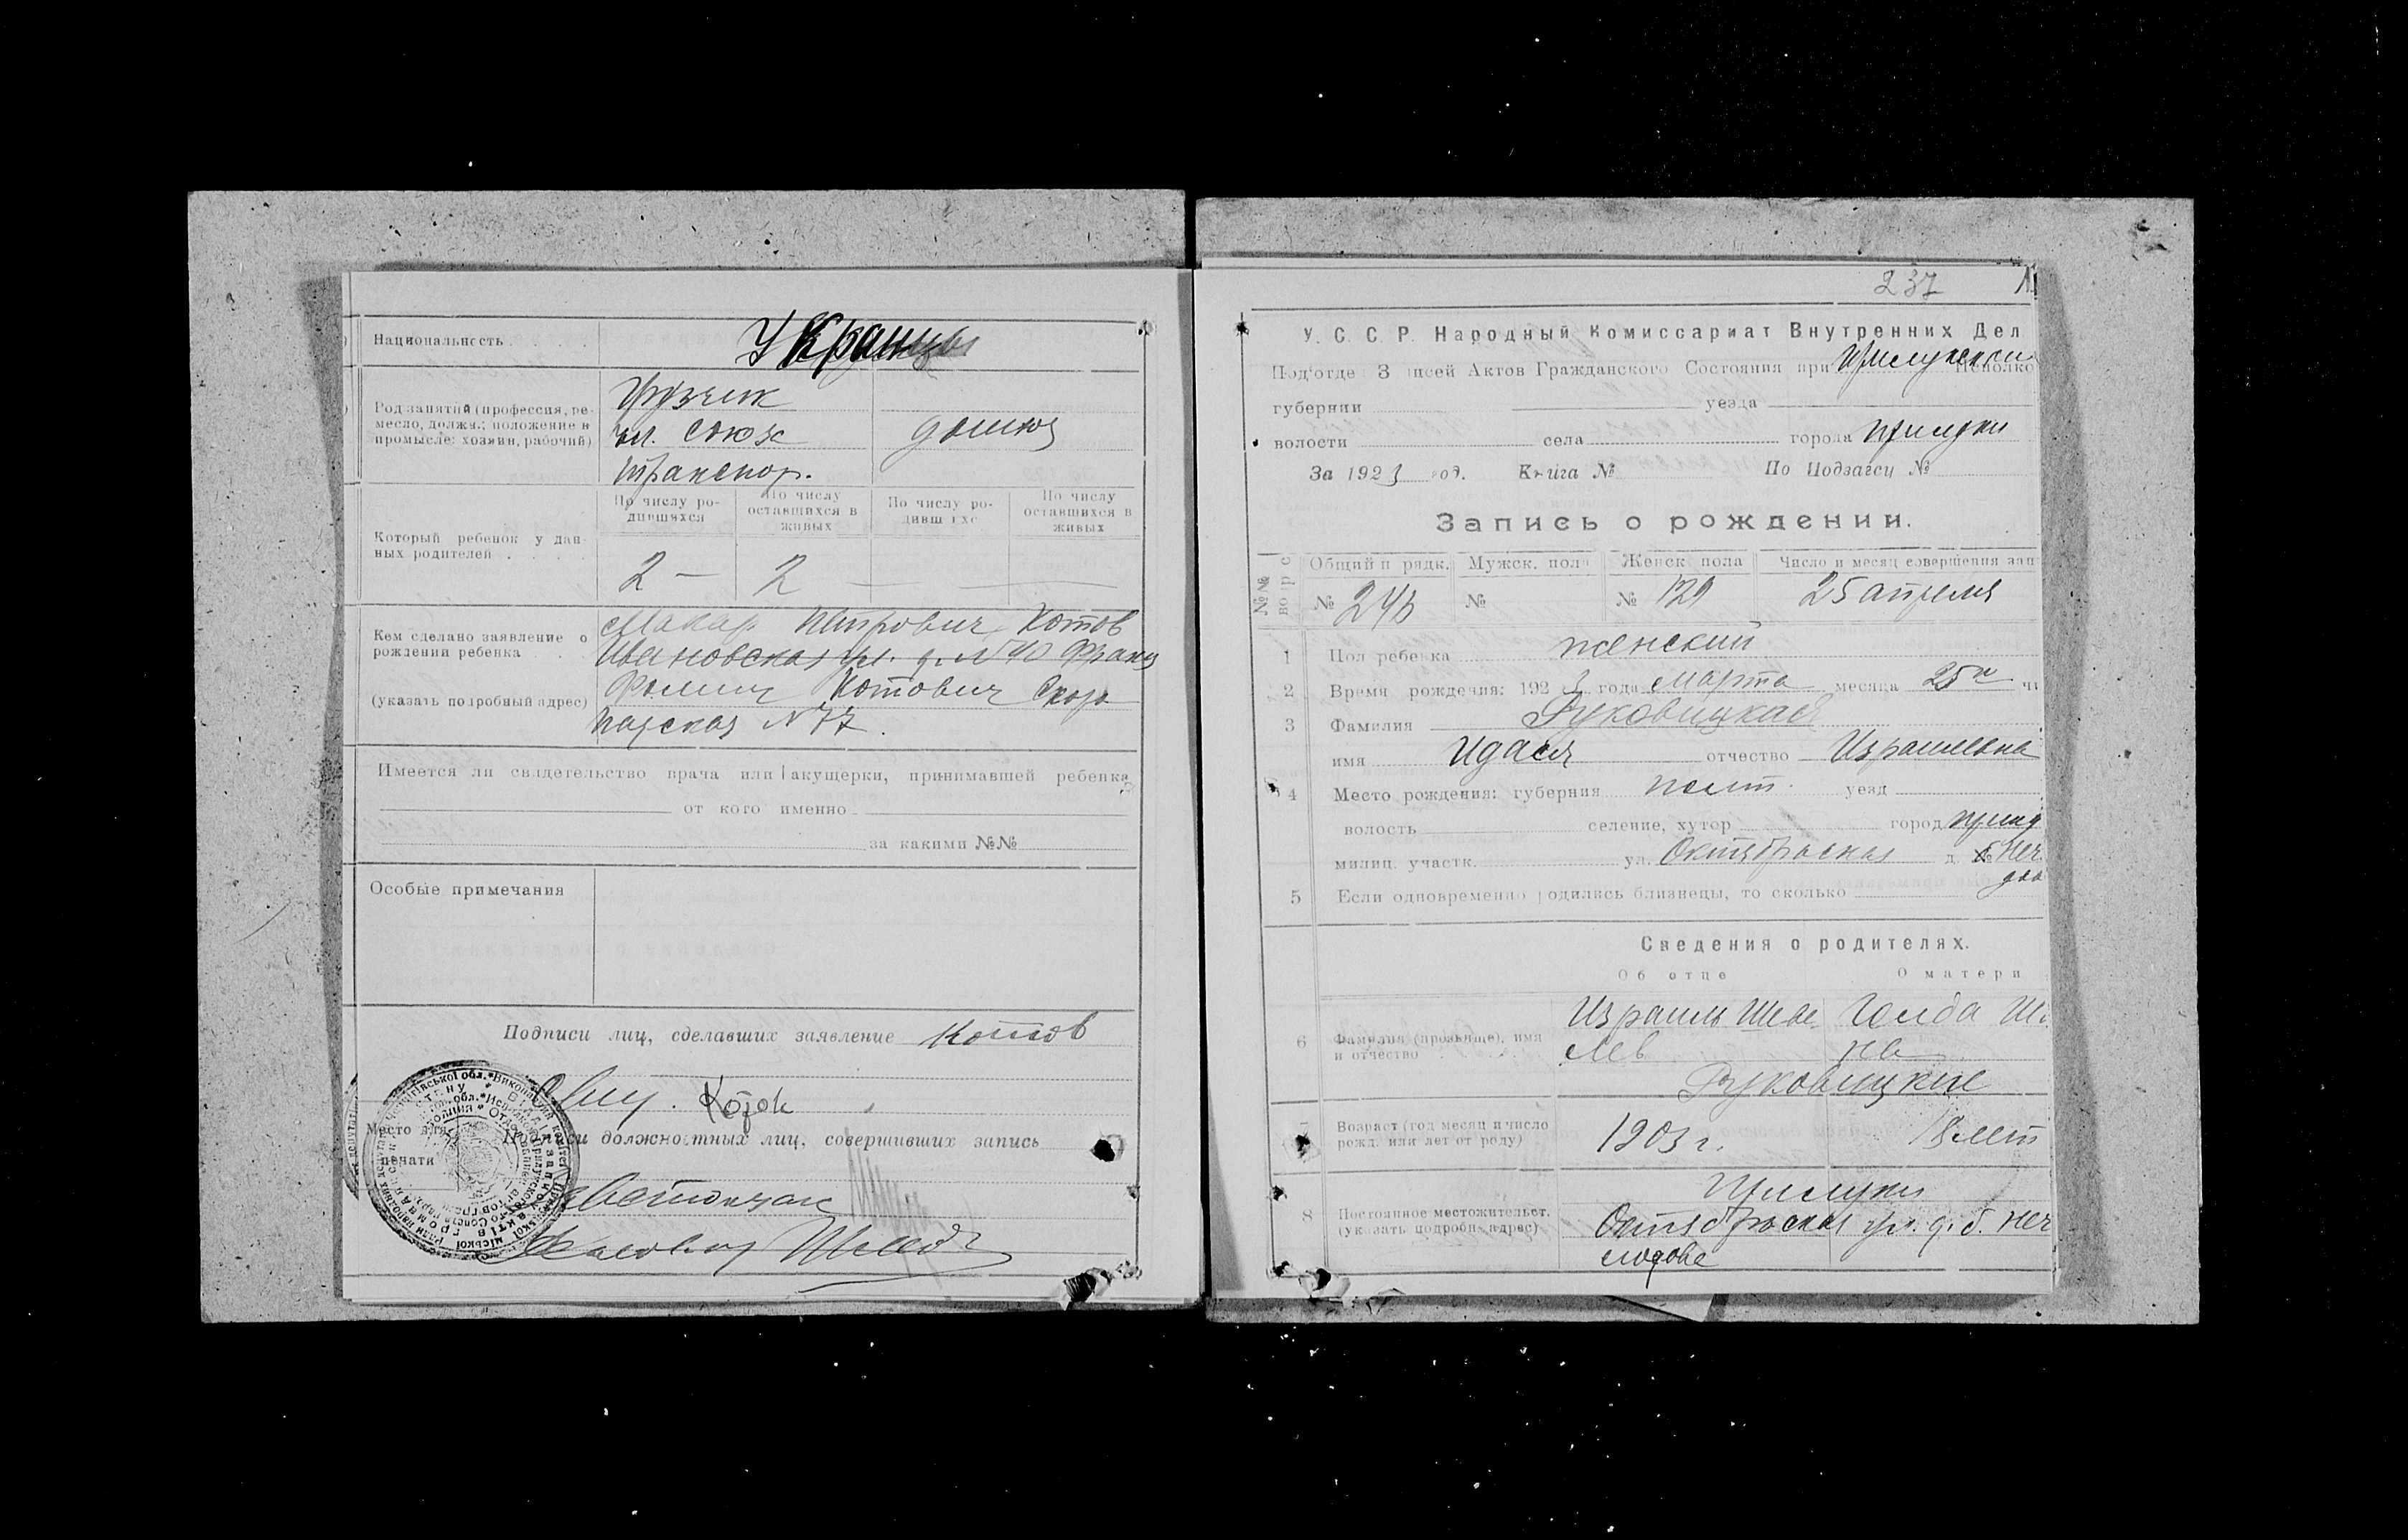 Национальность
Украинцы
Род занятий (профессия, ре-
месло, должн.; положение в
промысле: хозяин, рабочий)
Грузчик
чл. союза
транспор.
домхоз
Который ребенок у дан-
ных родителей
По числу ро-
дившихся
По числу
оставшихся в
живых
По числу ро-
дивш хс
По числу
оставшихся в
живых
2 —
2
Кем сделано заявление о
рождении ребенка
(указать подробный адрес)
Макар Петрович Котов
Ивановская ул. д. № 40 Франц
Котович Скоро
падская № 77.
Имеется ли свидетельство врача или акушерки, принимавшей ребенка
от кого именно
за какими №№
Особые примечания
Подписи лиц, сделавших заявление Котов
Место для
печати
Подписи должностных лиц, совершивших запись
237
У. С. С. Р. Народный Комиссариат Внутренних Дел
Под'отде З писей Актов Гражданского Состояния при Прилукском Исполко
губернии уезда
волости села города Прилуки
За 1923 год. Книга № По Подзагсу №
Запись о рождении.
№№
вопро
Общий п рядк. Мужск. пола Женск пола Число и месяц совершения зап
№ 243 № № 129 25 апреля
1 Пол ребенка женский
2 Время рождения: 1923 года марта месяца 25го чи
3 Фамилия Руковицкая
имя Идася отчество Израилевна
4 Место рождения: губерния Полт. уезд
волость селение, хутор город Прилу
милиц. участк. ул. Октябрьская д. № б Неч
5 Если одновременно родились близнецы, то сколько
Сведения о родителях.
Об отце О матери
6 Фамилия (прозвище), имя
и отчество
Израиль Шле
Голда
Руковицкие
7 Возраст (год месяц и число
рожд. или лет от роду)
1903 г. 18 лет
8 Постоянное местожительст.
(указать подробн адрес)
Прилуки
Октябрьская ул. д. б. Неч